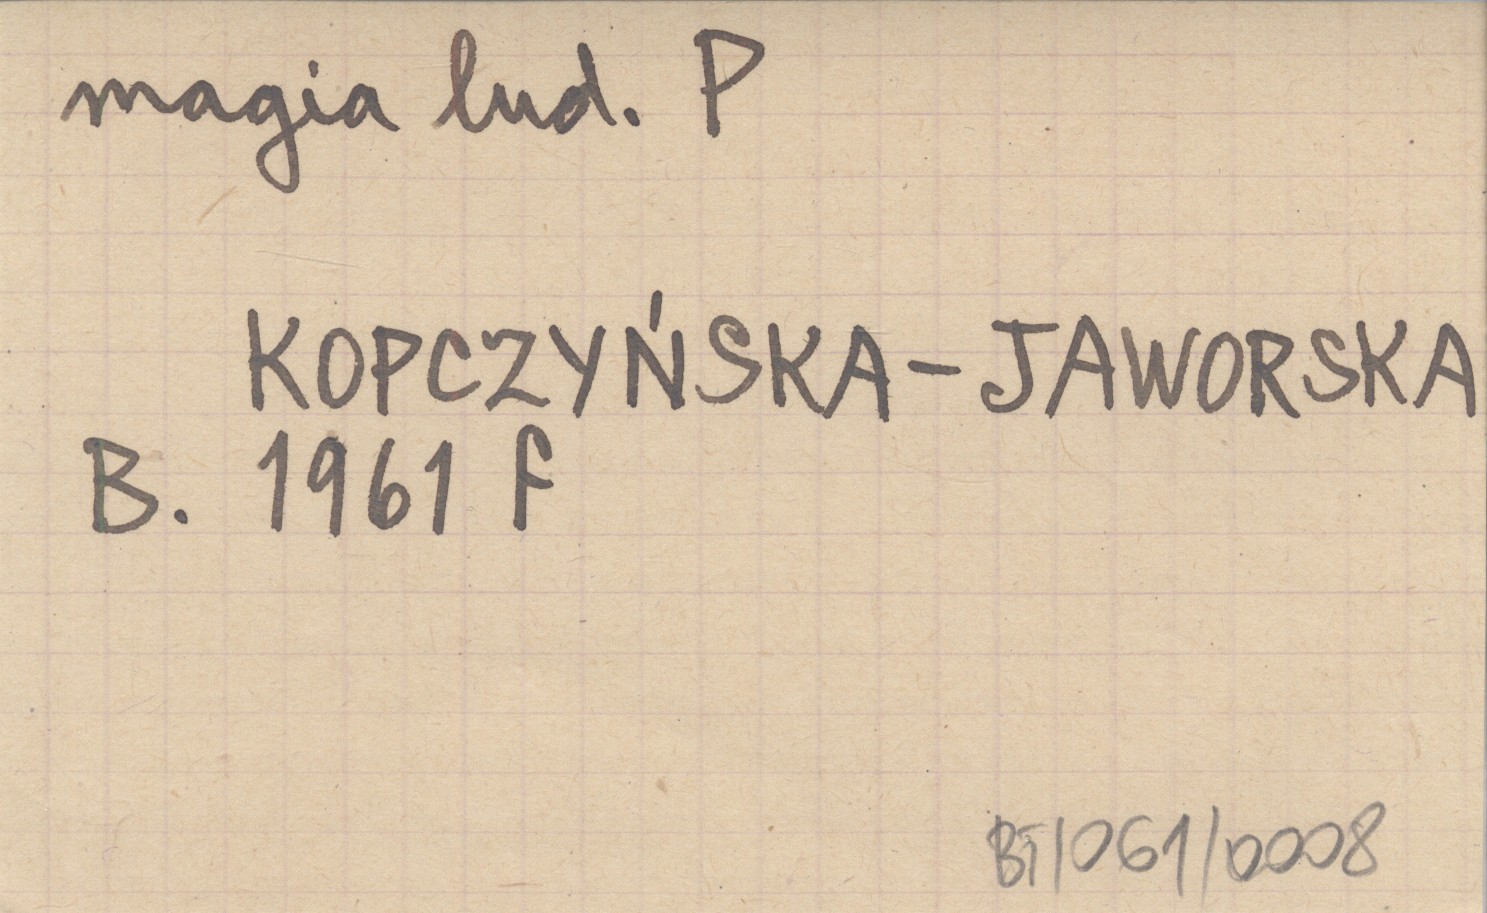 magia lud. P
KOPCZYŃSKA-JAWORSKA
B. 1961 f
BT/061/0008